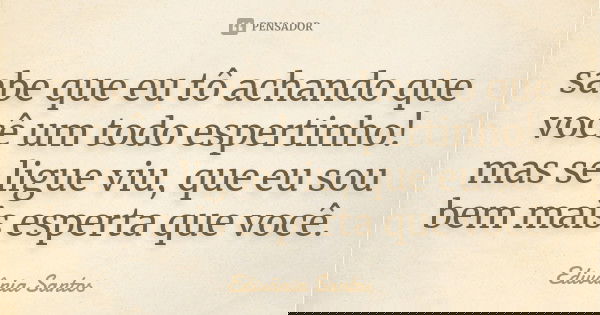 PENSADOR
sabe que eu tô achando que
você um todo espertinho!
mas se ligue viu, que eu sou
bem mais esperta que você.
Edivânia Santos